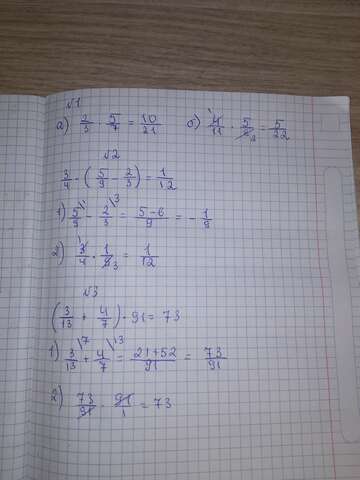 №1
а) 2/3 · 5/7 = 10/21 б) 4/11 · 5/8 2 = 5/22
№2
3/4 - (5/9 - 2/3) = 1/12
1) 5/9 - 2/3 \3 = 5-6/9 = - 1/9
2) 3/4 · 1/9 3 = 1/12
№3
(3/13 + 4/7) · 91 = 73
1) 3/13 \7 + 4/7 \13 = 21+52/91 = 73/91
2) 73/91 · 91/1 = 73